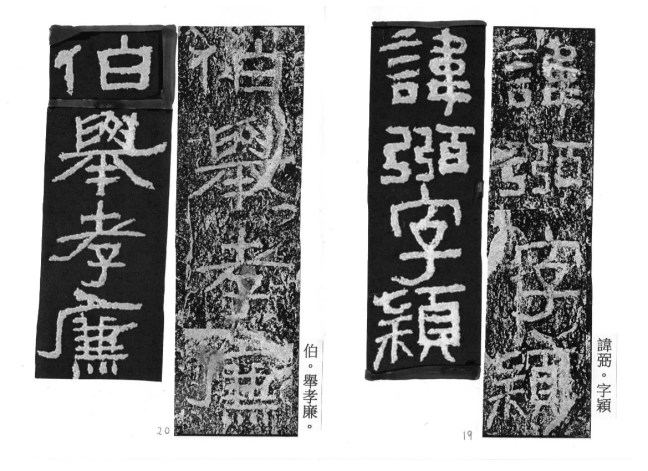 諱弼。字穎
諱弼字穎
諱弼字穎
19
伯。舉孝廉。
伯舉孝廉
伯舉孝廉
20